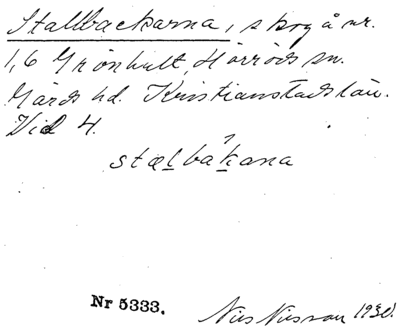 Stallbackarna, skog å nr.
1,6 Grönhult, Hörröds sn.
Gärds hd. Kristianstads län.
Vid 4.
stælbakana
Nr 5333.
Nils Nilsson 1930.